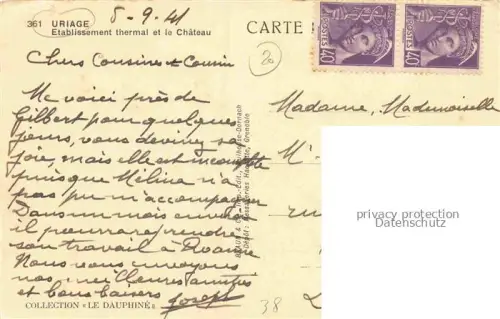 361 URIAGE
Etablissement thermal et le Château
8-9-41
CARTE
20
Chers Cousines et Cousin
Me voici près de
Gilbert pour quelques
jours, vous devinez sa
joie, mais elle est incomplète
puisque Mélina n'a
pas pu m'accompagner
Dans un mois environ
il pourra reprendre
son travail à Roanne
Nous vous envoyons
nos meilleures amitiés
et bons baisers Joseph
COLLECTION "LE DAUPHINÉ"
Madame, Mademoiselle
Mr
38
POSTES
40
POSTES
40
privacy protection
Datenschutz